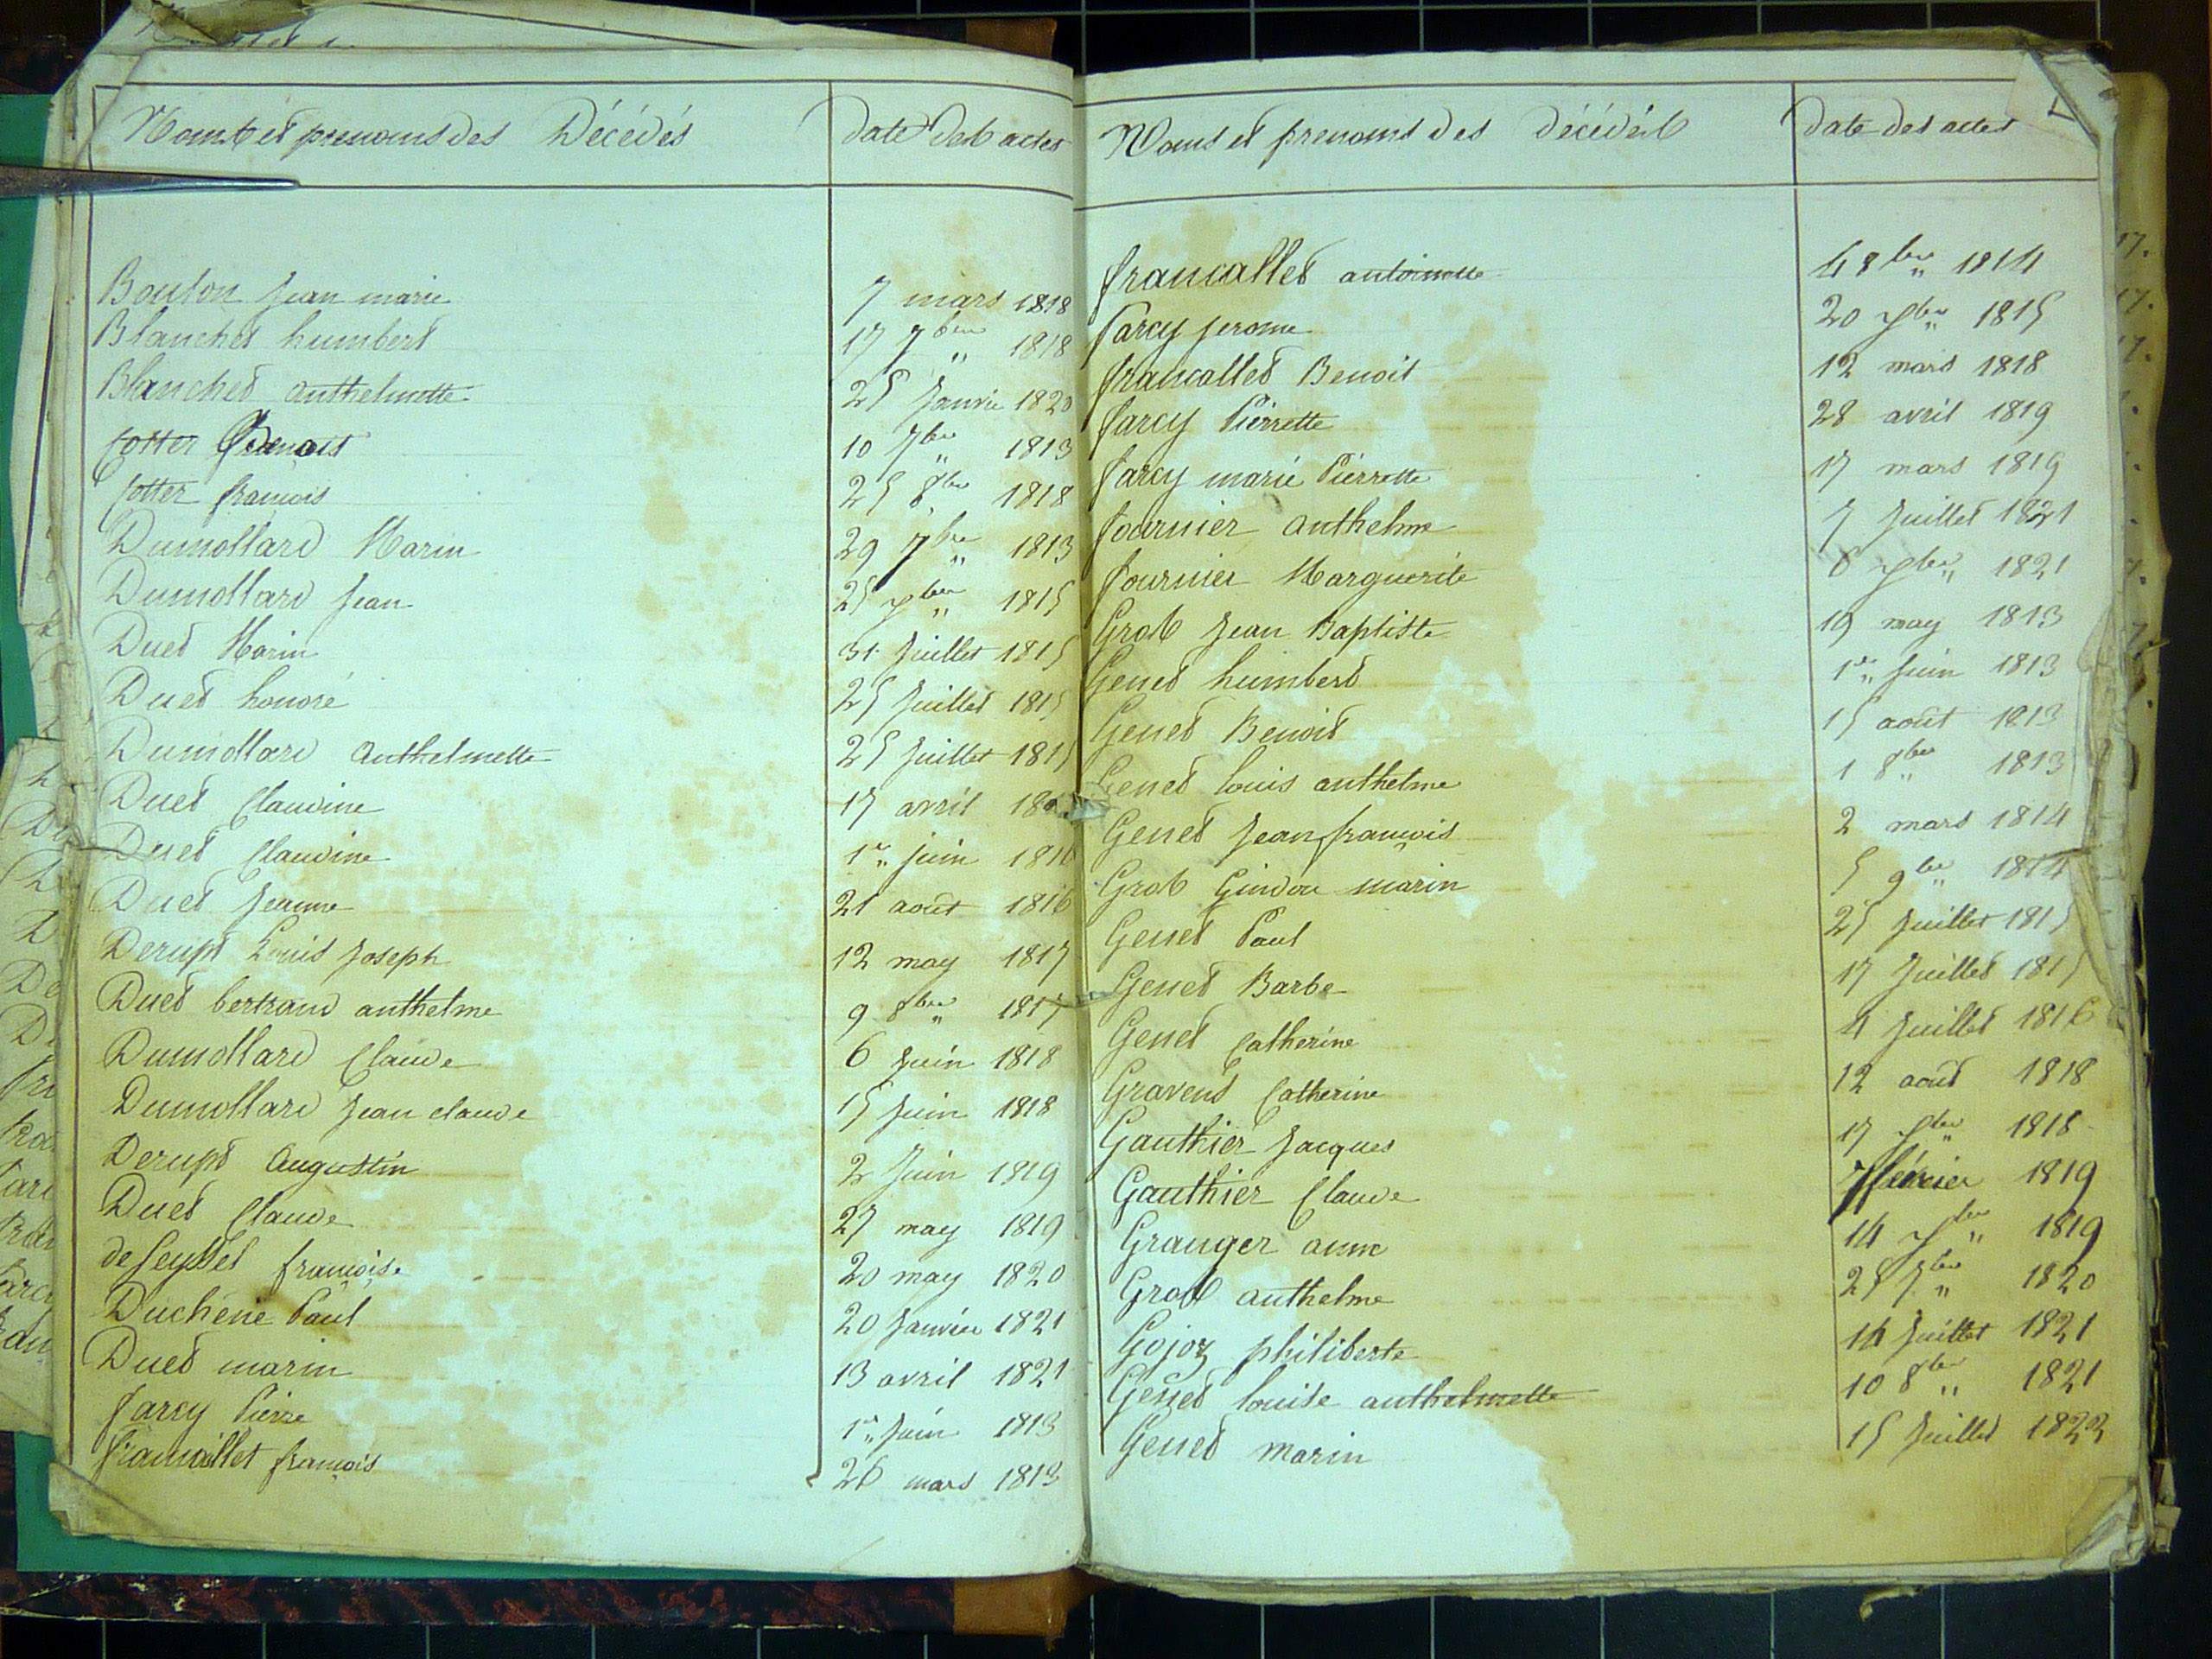 Noms et prenoms des Décédés Date des actes
Bouton Jean marie 7 mars 1818
Blanchet humbert 17 7bre 1818
Blanchet anthelmette 25 Janvie 1820
Cotter 10 7bre 1813
Cotter francois 25 8bre 1818
Dumollard Marin 29 7bre 1813
Dumollard Jean 25 1815
Duet Marin 31 Juillet 1815
Duet honoré 25 Juillet 1815
Dumollard Anthelmette 25 Juillet 1815
Duet Claudine 17 avril
Duet Claudine 1er Juin 1816
Duet Jeanne 21 août 1816
Derupt Louis Joseph 12 may 1817
Duet bertrand anthelme 9 8bre 1817
Dumollard Claude 6 Juin 1818
Dumollard Jean claude 15 Juin 1818
Derupt Augustin 2 Juin 1819
Duet Claude 27 may 1819
de Seyssel françoise 20 may 1820
Duchêne Paul 20 Janvier 1821
Duet marin 13 avril 1821
farcy Pierre 1er Juin 1813
francallet françois 26 mars 1813
Noms et prenoms des décédés Date des actes
francallet antoinette 4 8bre 1814
farcy jerome 20 1815
francallet Benoit 12 mars 1818
farcy Pierrette 28 avril 1819
farcy marie Pierrette 17 mars 1819
fournier anthelme 7 Juillet 1821
fournier Marguerite 8 1821
Grob Jean Baptiste 19 may 1813
Genet humbert 1er Juin 1813
Genet Benoit 15 août 1813
Genet louis anthelme 1 8bre 1813
Genet Jean françois 2 mars 1814
Grob Gindou marin 5 9bre 1814
Genet Paul 25 Juillet 1815
Genet Barbe 17 Juillet 1815
Genet Catherine 4 Juillet 1816
Gravend Catherine 12 août 1818
Gauthier Jacques 17 1818
Gauthier Claude 7 février 1819
Granger anne 14 1819
Grob anthelme 1820
Gojoz philiberte 14 Juillet 1821
Genet louise anthelmette 10 8bre 1821
Genet marin 15 Juillet 1822